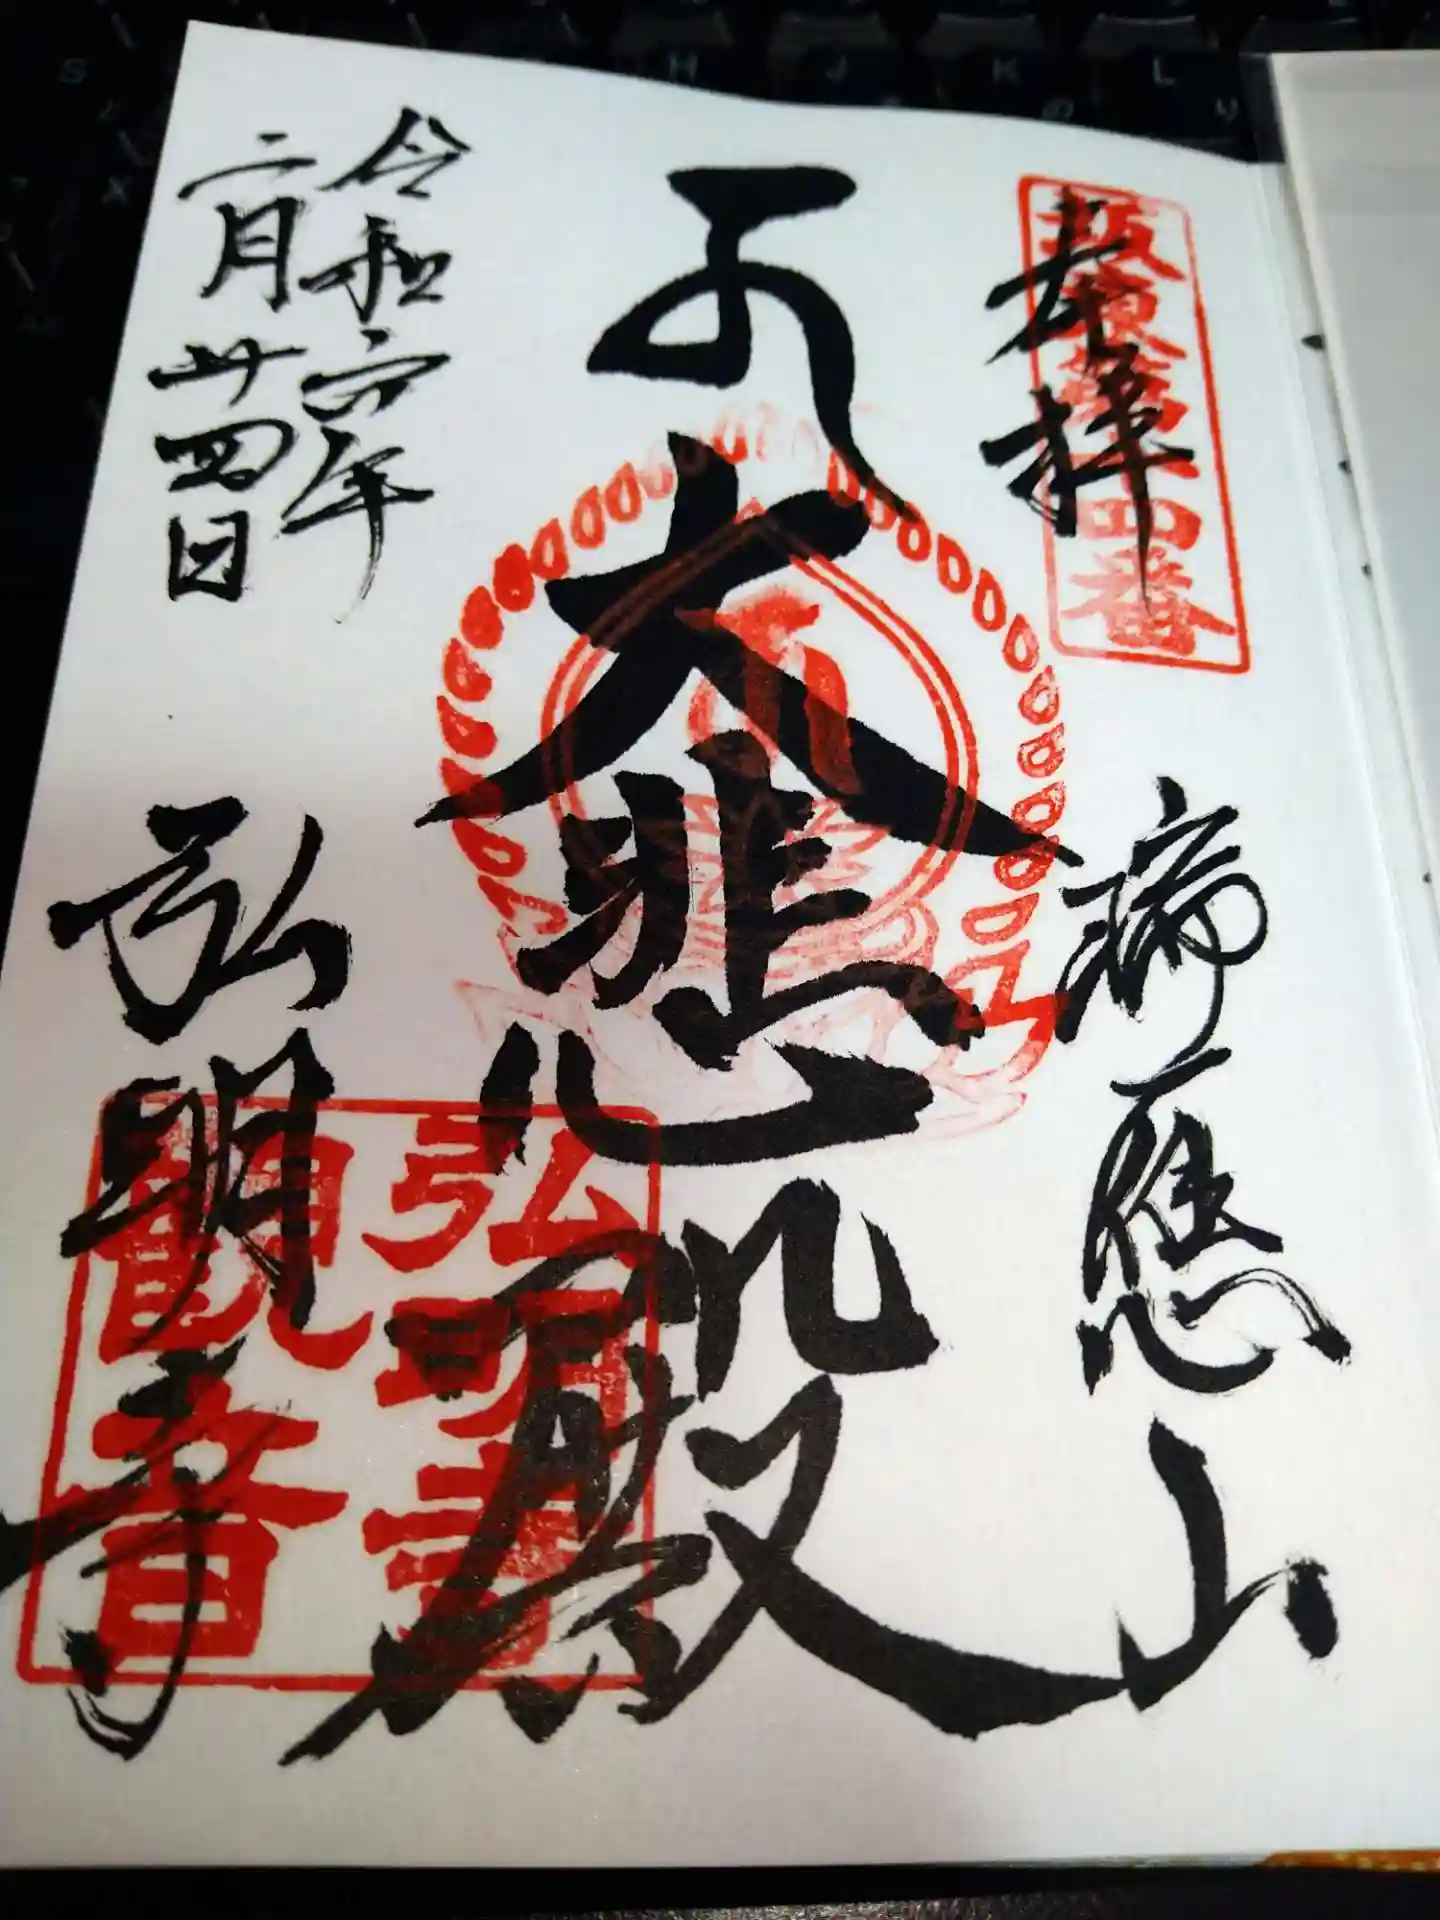 奉拝
坂東第十四番
瑞應山
大悲殿
弘明寺
観音
令和六年
二月廿四日
弘明寺